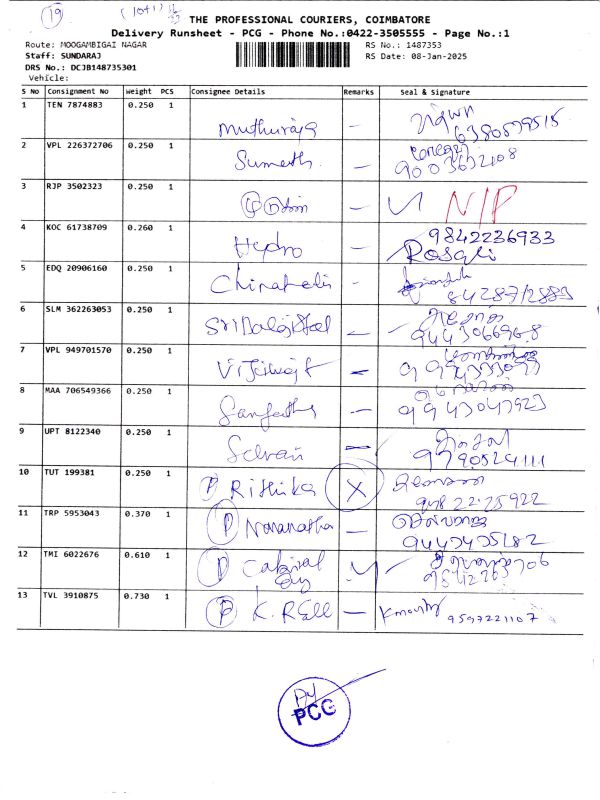 19
(10+1) 11/22
THE PROFESSIONAL COURIERS, COIMBATORE
Delivery Runsheet - PCG - Phone No.:0422-3505555 - Page No.:1
Route: MOOGAMBIGAI NAGAR
RS No.: 1487353
Staff: SUNDARAJ
RS Date: 08-Jan-2025
DRS No.: DCJB148735301
Vehicle:
S No Consignment No Weight PCS Consignee Details Remarks Seal & Signature
1 TEN 7874883 0.250 1 Muthuraja -
2 VPL 226372706 0.250 1 Sumeth - 9003632108
3 RJP 3502323 0.250 1 - N/P
4 KOC 61738709 0.260 1 Hydro - 9842236933
Rosali
5 EDQ 20906160 0.250 1 - 8428712883
6 SLM 362263053 0.250 1 Sri Balaji Steel - 9443066968
7 VPL 949701570 0.250 1 -
8 MAA 706549366 0.250 1 Sangeetha - 9943043923
9 UPT 8122340 0.250 1 Selvan - 9790524111
10 TUT 199381 0.250 1 P Rithika X
11 TRP 5953043 0.370 1 P - 9443435182
12 TMI 6022676 0.610 1 P
13 TVL 3910875 0.730 1 P K. REll - 9597221107
PCG